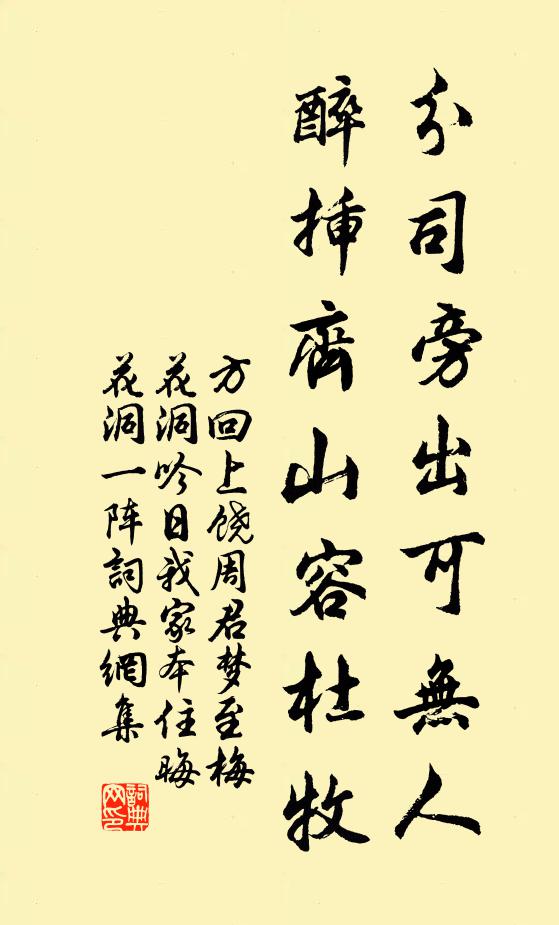 分司旁出可無人
醉插齊山容杜牧
方回上饶周君梦至梅
花洞吟日我家本住晦
花洞一阵詞典網集
詞典网印